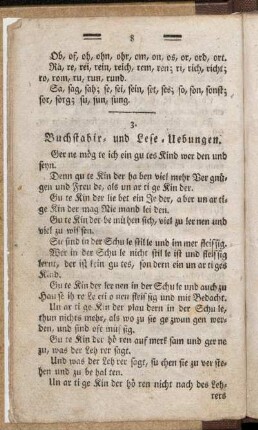 8
Ob, of, oh, ohn, ohr, om, on, os, or, ord, ort.
Rä, re, rei, rein, reich, rem, ren; ri, rich, richt;
ro, rom, ru, run, rund.
Sa, sag, sah; se, sei, sein, set, so, son, sonst;
sor, sorg; su, sun, sung.
3.
Buchstabir- und Lese-Uebungen.
Ger ne mög te ich ein gu tes Kind wer den und
seyn.
Denn gu te Kin der ha ben viel mehr Ver gnü
gen und Freu de, als un ar ti ge Kin der.
Gu te Kin der lie bet ein Je der, a ber un ar ti
ge Kin der mag Nie mand lei den.
Gu te Kin der be mü hen sich, viel zu ler nen und
viel zu wis sen.
Sie sind in der Schu le still le und im mer fleis sig.
Wer in der Schu le nicht stil le ist und fleis sig
lernt, der ist kein gu tes, son dern ein un ar ti ges
Kind.
Gu te Kin der ler nen in der Schu le und auch zu
Hau se ih re Le cti o nen fleis sig und mit Bedacht.
Un ar ti ge Kin der plau dern in der Schu le,
thun nichts mehr, als wo zu sie ge zwun gen wer-
den, und sind oft müs sig.
Gu te Kin der hö ren auf merk sam und ger ne
zu, was der Leh rer sagt.
Und was der Leh rer sagt, su chen sie zu ver ste-
hen und zu be hal ten.
Un ar ti ge Kin der hö ren nicht nach des Leh-
rers